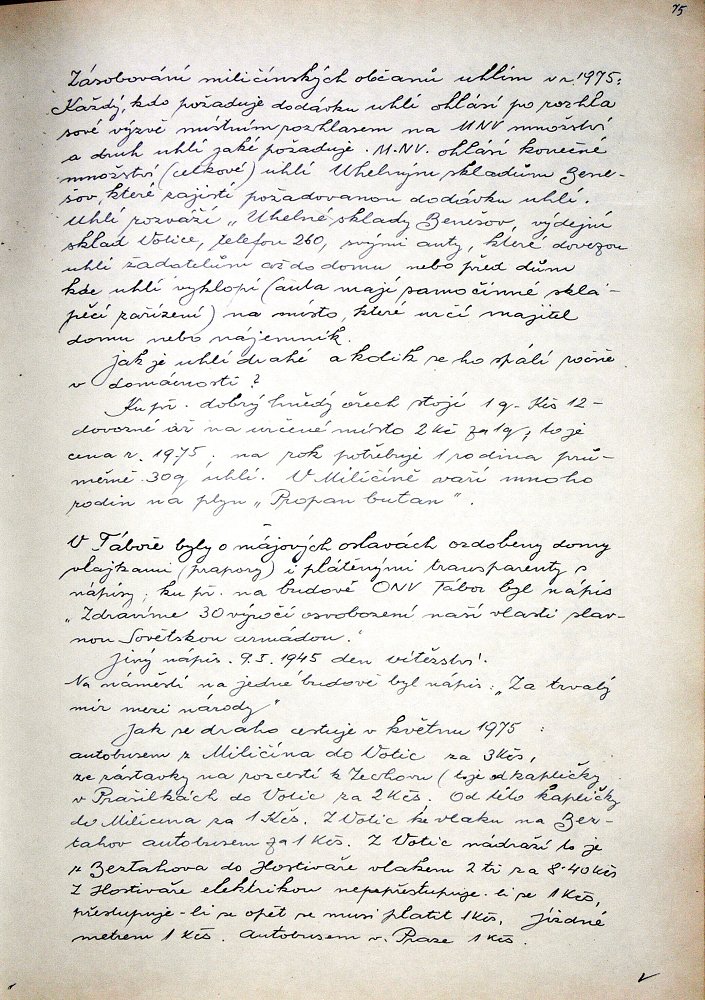 75
Zásobování miličínských občanů uhlím v r. 1975:
Každý, kdo požaduje dodávku uhlí ohlásí po rozhla
sové výzvě místním rozhlasem na MNV množství
a druh uhlí jaké požaduje. M.NV. ohlásí konečné
množství (celkové) uhlí Uhelným skladům Bene-
šov, které zajistí požadovanou dodávku uhlí.
Uhlí rozváží „Uhelné sklady Benešov, výdejní
sklad Votice, telefon 260, svými auty, které dovezou
uhlí žadatelům až do domu nebo před dům
kde uhlí vyklopí (auta mají samočinné sklá-
pěcí zařízení) na místo, které určí majitel
domu nebo nájemník.
Jak je uhlí drahé a kolik se ho spálí ročně
v domácnosti?
Ku př. dobrý hnědý ořech stojí 1 q - Kčs 12-
dovozné až na určené místo 2 Kč za 1q, to je
cena r. 1975; na rok potřebuje 1 rodina prů-
měrně 30q uhlí. V Miličíně vaří mnoho
rodin na plyn „Propan butan".
V Táboře byly o májových oslavách ozdobeny domy
vlajkami (prapory) i plátěnými transparenty s
nápisy; ku př. na budově ONV Tábor byl nápis
„Zdravíme 30 výročí osvobození naší vlasti slav-
nou Sovětskou armádou."
Jiný nápis. 9.5. 1945 den vítězství.
Na náměstí na jedné budově byl nápis: „Za trvalý
mír mezi národy"
Jak se draho cestuje v květnu 1975:
autobusem z Miličína do Votic za 3Kčs,
ze zastávky na rozcestí k Zechovu (to je od kapličky
v Prašilkách do Votic za 2 Kčs. Od této kapličky
do Milicina za 1 Kčs. Z Votic ke vlaku na Bez-
tahov autobusem za 1 Kčs. Z Votic nádraží to je
z Beztahova do Hostivaře vlakem 2 tř za 8·40 Kčs
Z Hostivaře elektrikou nepepřestupuje-li se 1 Kčs,
přestupuje-li se opět se musí platit 1Kčs, jízdné
metrem 1 Kčs. Autobusem v. Praze 1 Kčs.